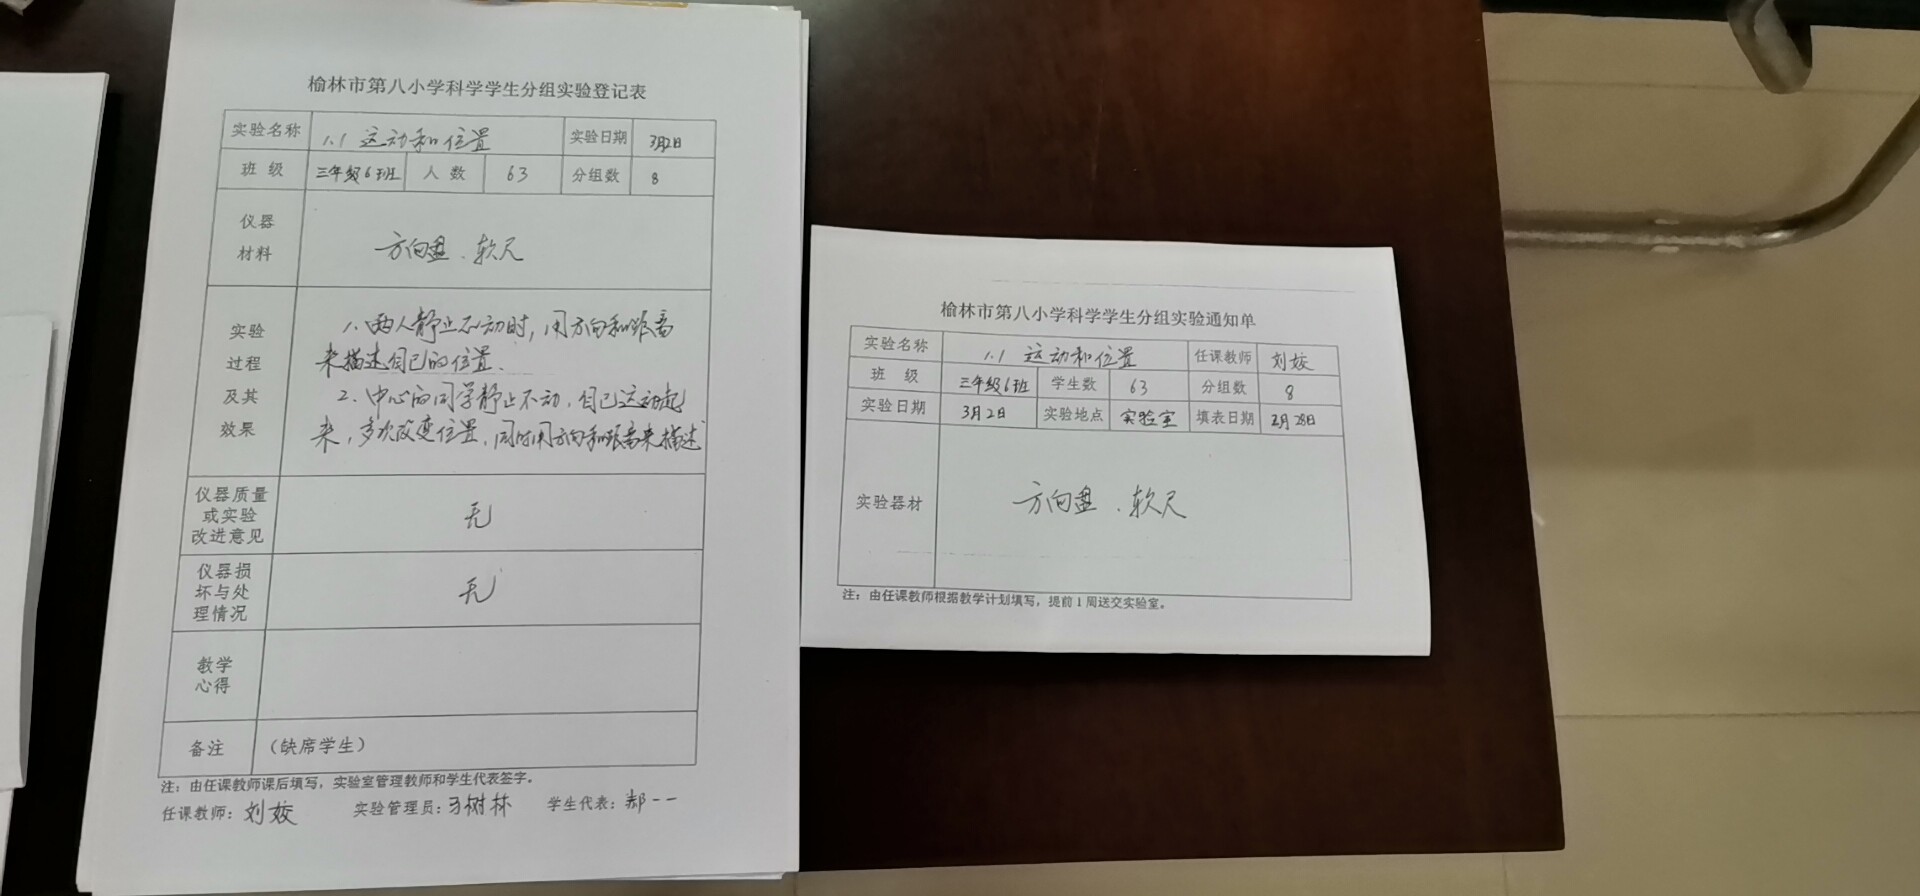 榆林市第八小学科学学生分组实验登记表
实验名称 1.1 运动和位置 实验日期 3月2日
班 级 三年级6班 人 数 63 分组数 8
仪器
材料
方向盘、软尺
实验
过程
及其
效果
1、两人静止不动时,用方向和距离
来描述自己的位置.
2、中心的同学静止不动,自己运动起
来,多次改变位置,同时用方向和距离来描述
仪器质量
或实验
改进意见
无
仪器损
坏与处
理情况
无
教学
心得
备注 (缺席学生)
注:由任课教师课后填写,实验室管理教师和学生代表签字。
任课教师:刘姣 实验管理员: 树林 学生代表:郝一一
榆林市第八小学科学学生分组实验通知单
实验名称 1.1 运动和位置 任课教师 刘姣
班 级 三年级6班 学生数 63 分组数 8
实验日期 3月2日 实验地点 实验室 填表日期 2月28日
实验器材 方向盘、软尺
注:由任课教师根据教学计划填写,提前1周送交实验室。